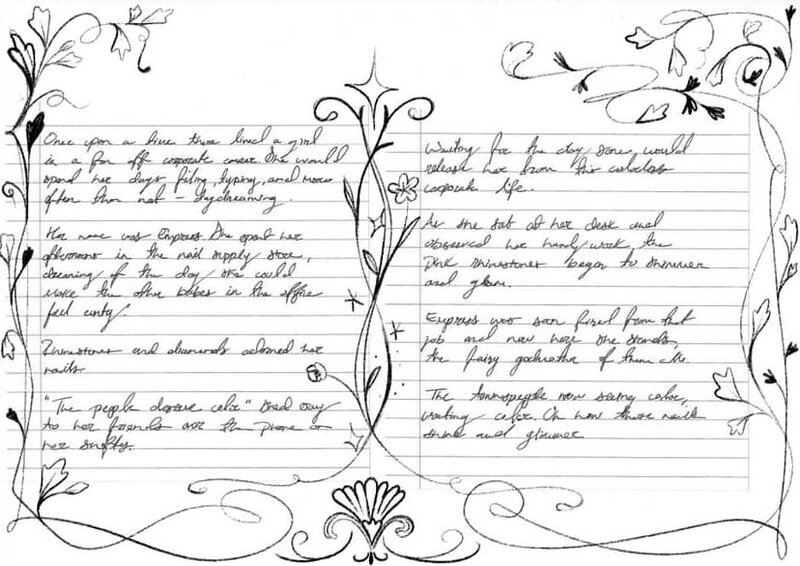 Once upon a time there lived a girl
in a far off corporate career. She would
spend her days filing, typing, and more
often than not - daydreaming.
Her name was Empress. She spent her
afternoons in the nail supply store,
dreaming of the day she could
make the other babes in the office
feel cunty.
Rhinestones and diamonds adorned her
nails
"The people deserve color" she'd say
to her friends over the phone on
her shifts.
Waiting for the day some would
release her from this colorless
corporate life.
As she sat at her desk and
observed her handy work, the
pink rhinestones began to shimmer
and gleam.
Empress was soon fired from that
job and now here she stands,
the fairy godmother of them all.
The townspeople now seeing color,
wanting color. Oh how those nails
shine and glimmer